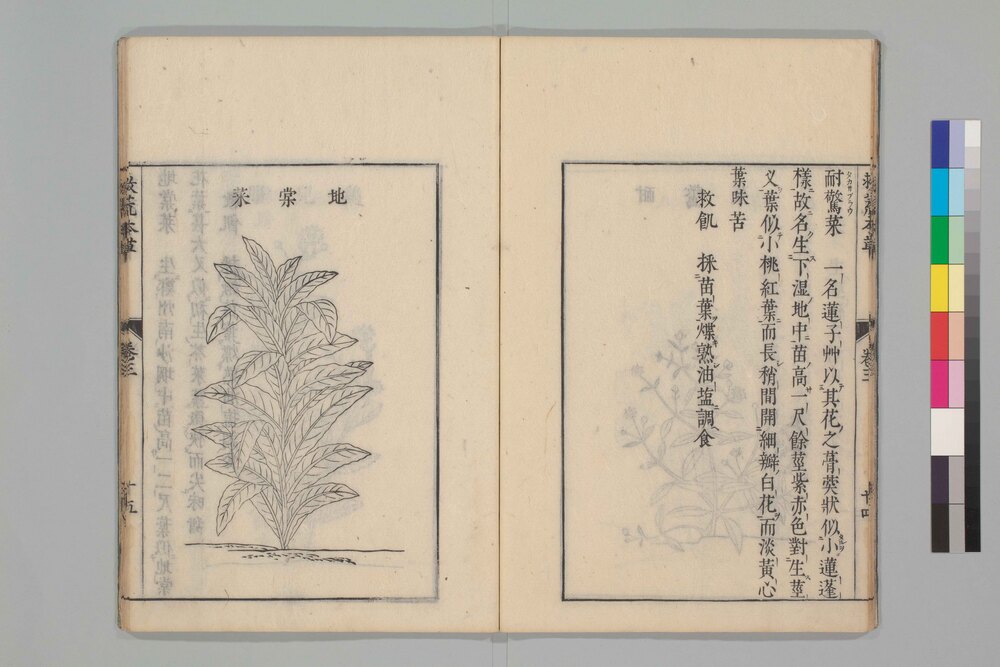 救荒本草
卷三
十四
耐驚菜 一名蓮子艸以其花之蓇葖狀似小蓮蓬
樣故名生下湿地中苗高一尺餘莖紫赤色對生莖
叉葉似小桃紅葉而長稍間開細瓣白花而淡黄心
葉味苦
救飢 採苗葉煠熟油塩調食
地棠菜
救荒本草
卷三
十五